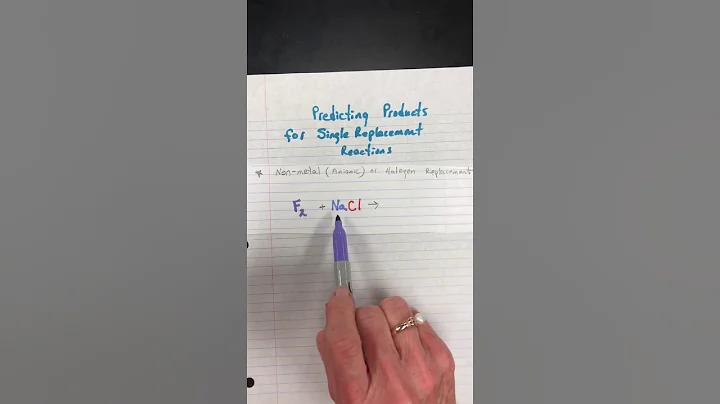 Predicting Products
for Single Replacement
Reactions
* Non-metal (Anionic) or Halogen Replacement
F₂ + NaCl →